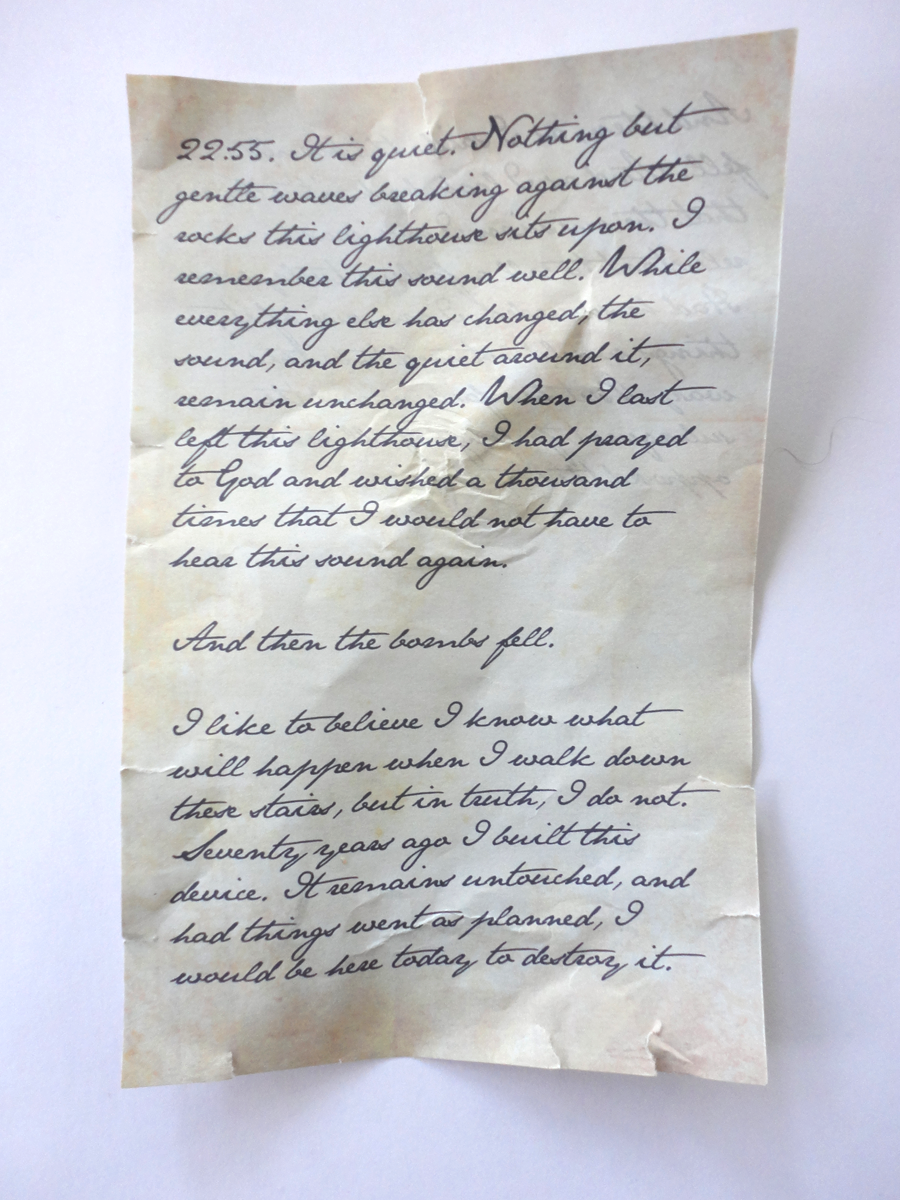 22:55. It is quiet. Nothing but
gentle waves breaking against the
rocks this lighthouse sits upon. I
remember this sound well. While
everything else has changed, the
sound, and the quiet around it,
remain unchanged. When I last
left this lighthouse, I had prayed
to God and wished a thousand
times that I would not have to
hear this sound again.
And then the bombs fell.
I like to believe I know what
will happen when I walk down
these stairs, but in truth, I do not.
Seventy years ago I built this
device. It remains untouched, and
had things went as planned, I
would be here today to destroy it.